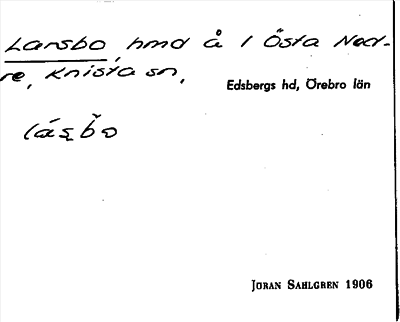 Larsbo, hmd å 1 Östa Ned-
re, Knista sn,
Edsbergs hd, Örebro län
lásbo
Jöran Sahlgren 1906